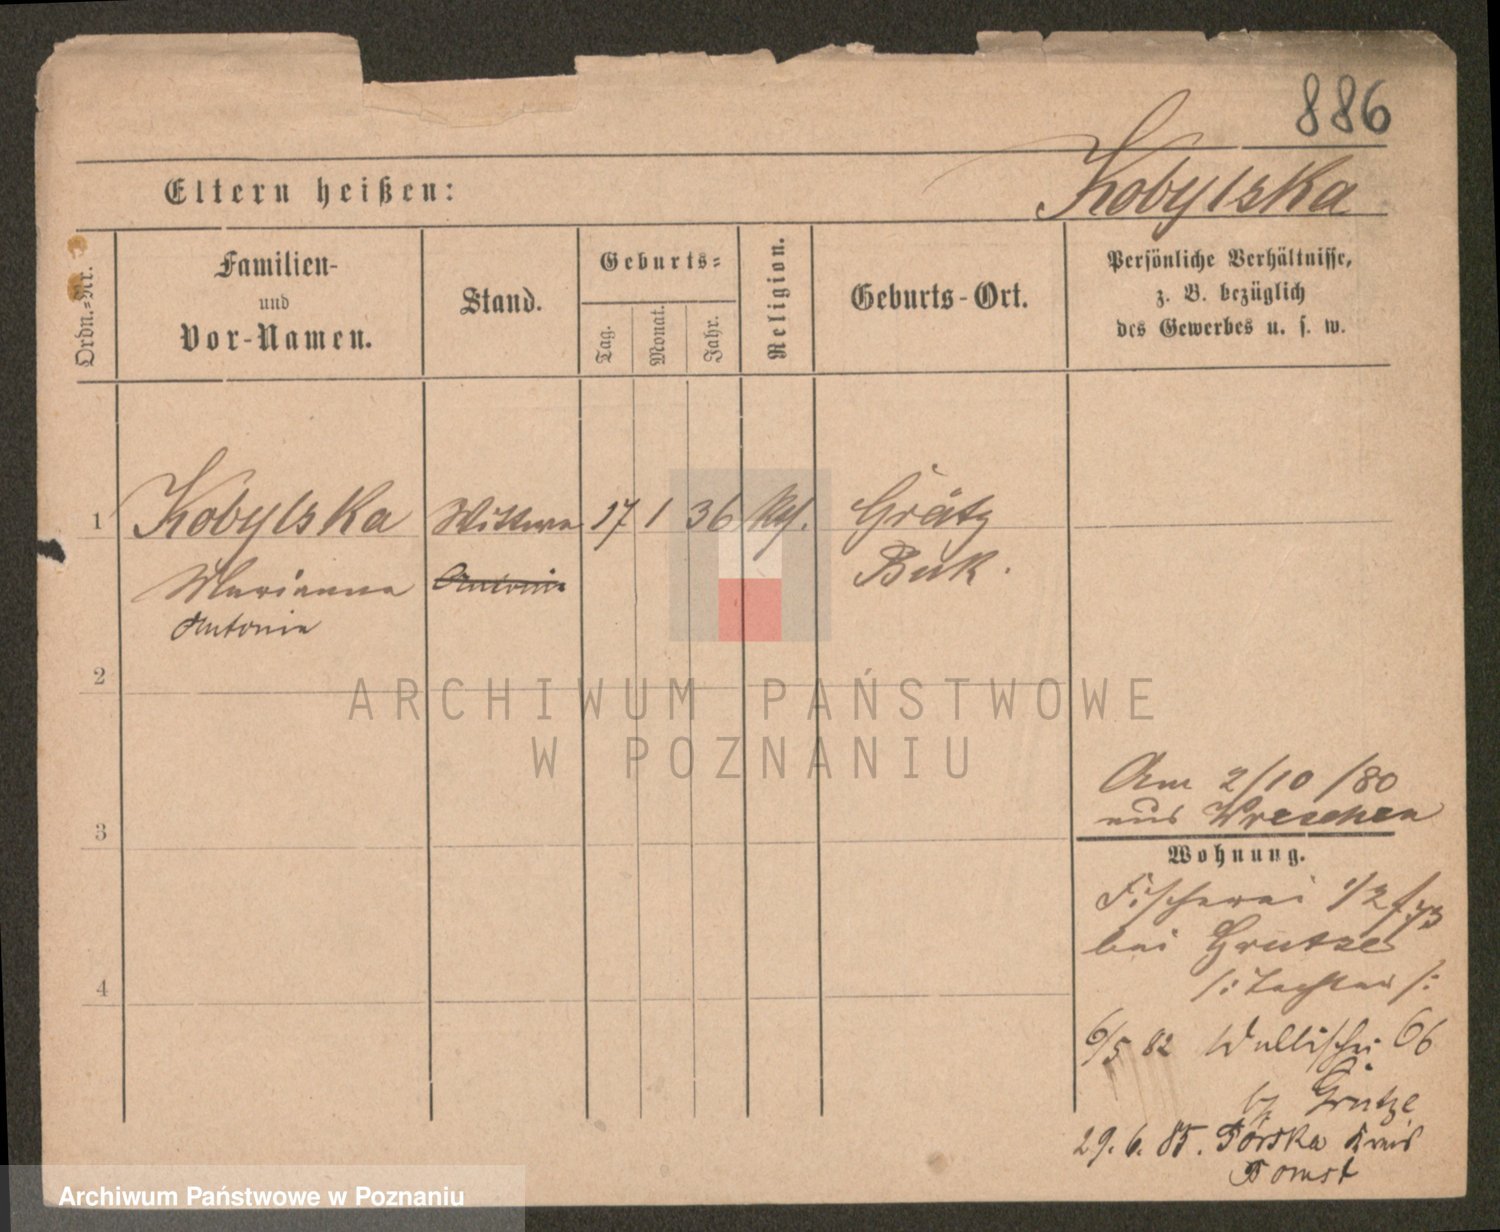 886
Eltern heißen:
Kobylska
Ordn.-Nr.
Familien-
und
Vor-Namen.
Stand.
Geburts-
Tag.
Monat.
Jahr.
Religion.
Geburts-Ort.
Persönliche Verhältnisse,
z. B. bezüglich
des Gewerbes u. s. w.
1 Kobylska Wittwe 17 1 36 Grätz
Marianna Antonie Buk.
Antonia
2
ARCHIWUM PAŃSTWOWE
W POZNANIU
Am 2/10/80
aus Wreschen
3
Wohnung.
Fischerei 1/2
bei Grutze
/: Tochter /:
4
6/5 82 Wallischei 66
b/ Grutze
29. 6. 85. Kreis
Bomst
Archiwum Państwowe w Poznaniu